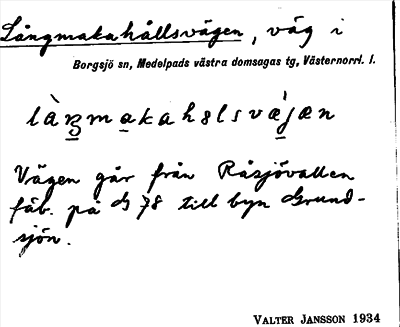 Långmakahållsvägen, väg i
Borgsjö sn, Medelpads västra domsagas tg, Västernorrl. l.
Vägen går från Råsjövallen
fäb. på G 78 till byn Grund-
sjön.
VALTER JANSSON 1934